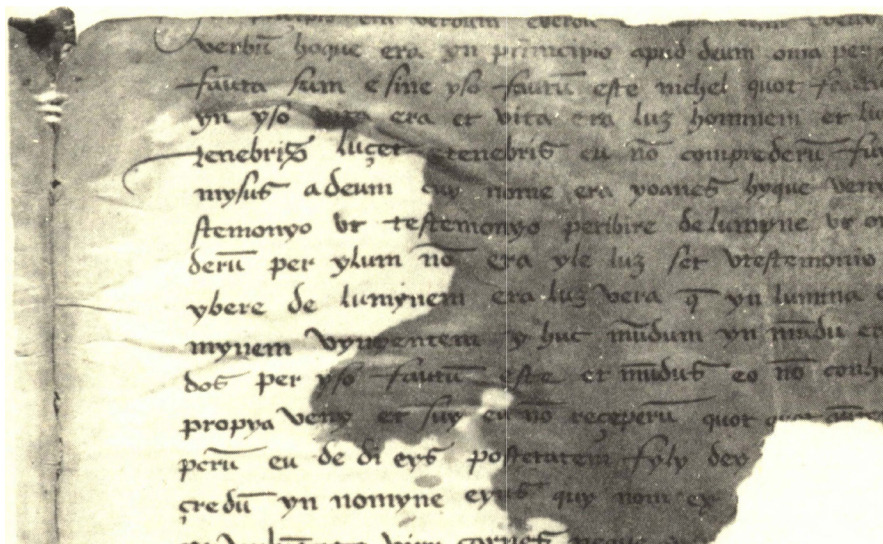 verbū hoque era yn prīncipio apud deum omia per
fauta sum e sine yso fautū este nichel quot
yn yso vita era et vita era luz hominem et
tenebris luçet tenebris eu nō comprederū
mysus a deum cuy nome era yoanes hyque veny
stemonyo vt testemonyo peribire de lumyne vt
derū per ylum nō era yle luz set vtestemonio
ybere de lumynem era luz vera q̄ yn lumina
mynem vynyentem y huc mūdum yn mūdu
dos per yso fautū este et mūdus eo nō
propya veny et suy eu nō reçeperū quot quot
perū eu de di eys postetatem fyly deo
çredū yn nomyne eyus quy nom ex